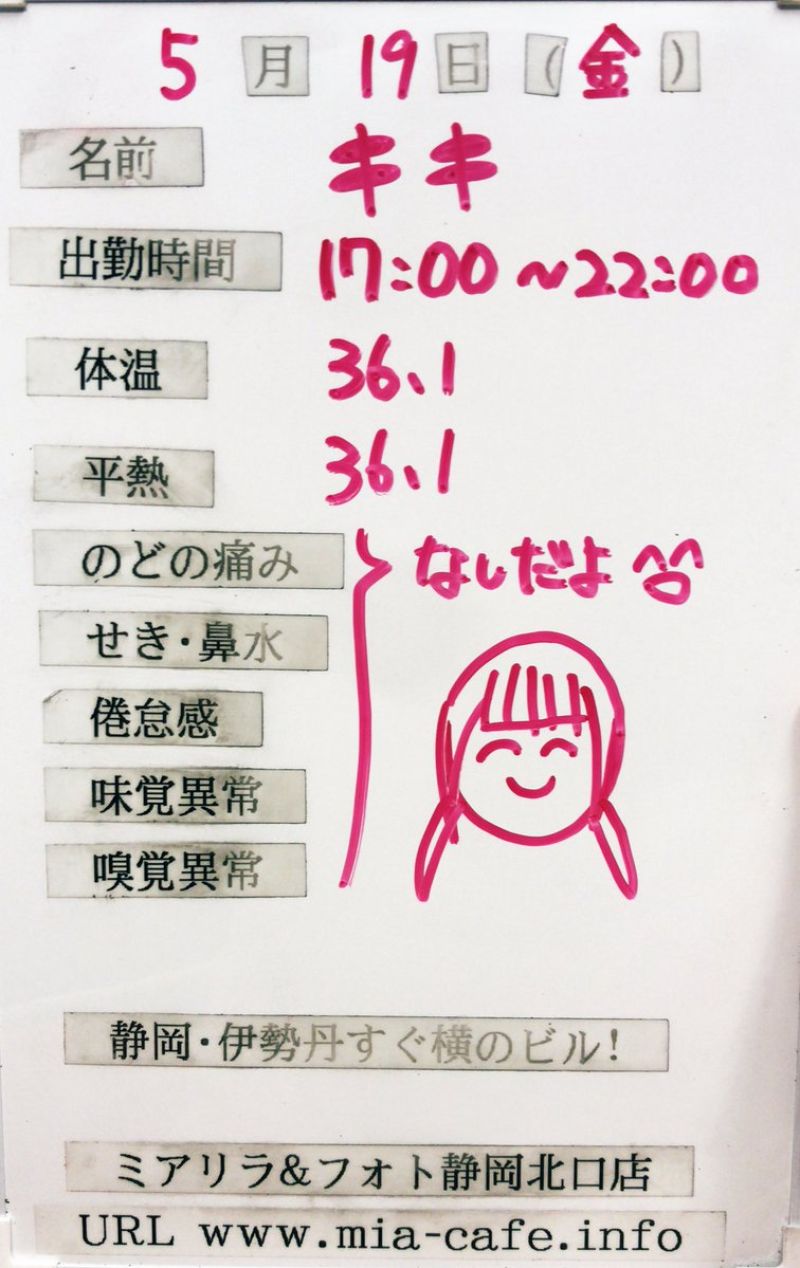 5月19日(金)
名前 キキ
出勤時間 17:00～22:00
体温 36、1
平熱 36、1
のどの痛み なしだよ
せき・鼻水
倦怠感
味覚異常
嗅覚異常
静岡・伊勢丹すぐ横のビル！
ミアリラ&フォト静岡北口店
URL www.mia-cafe.info